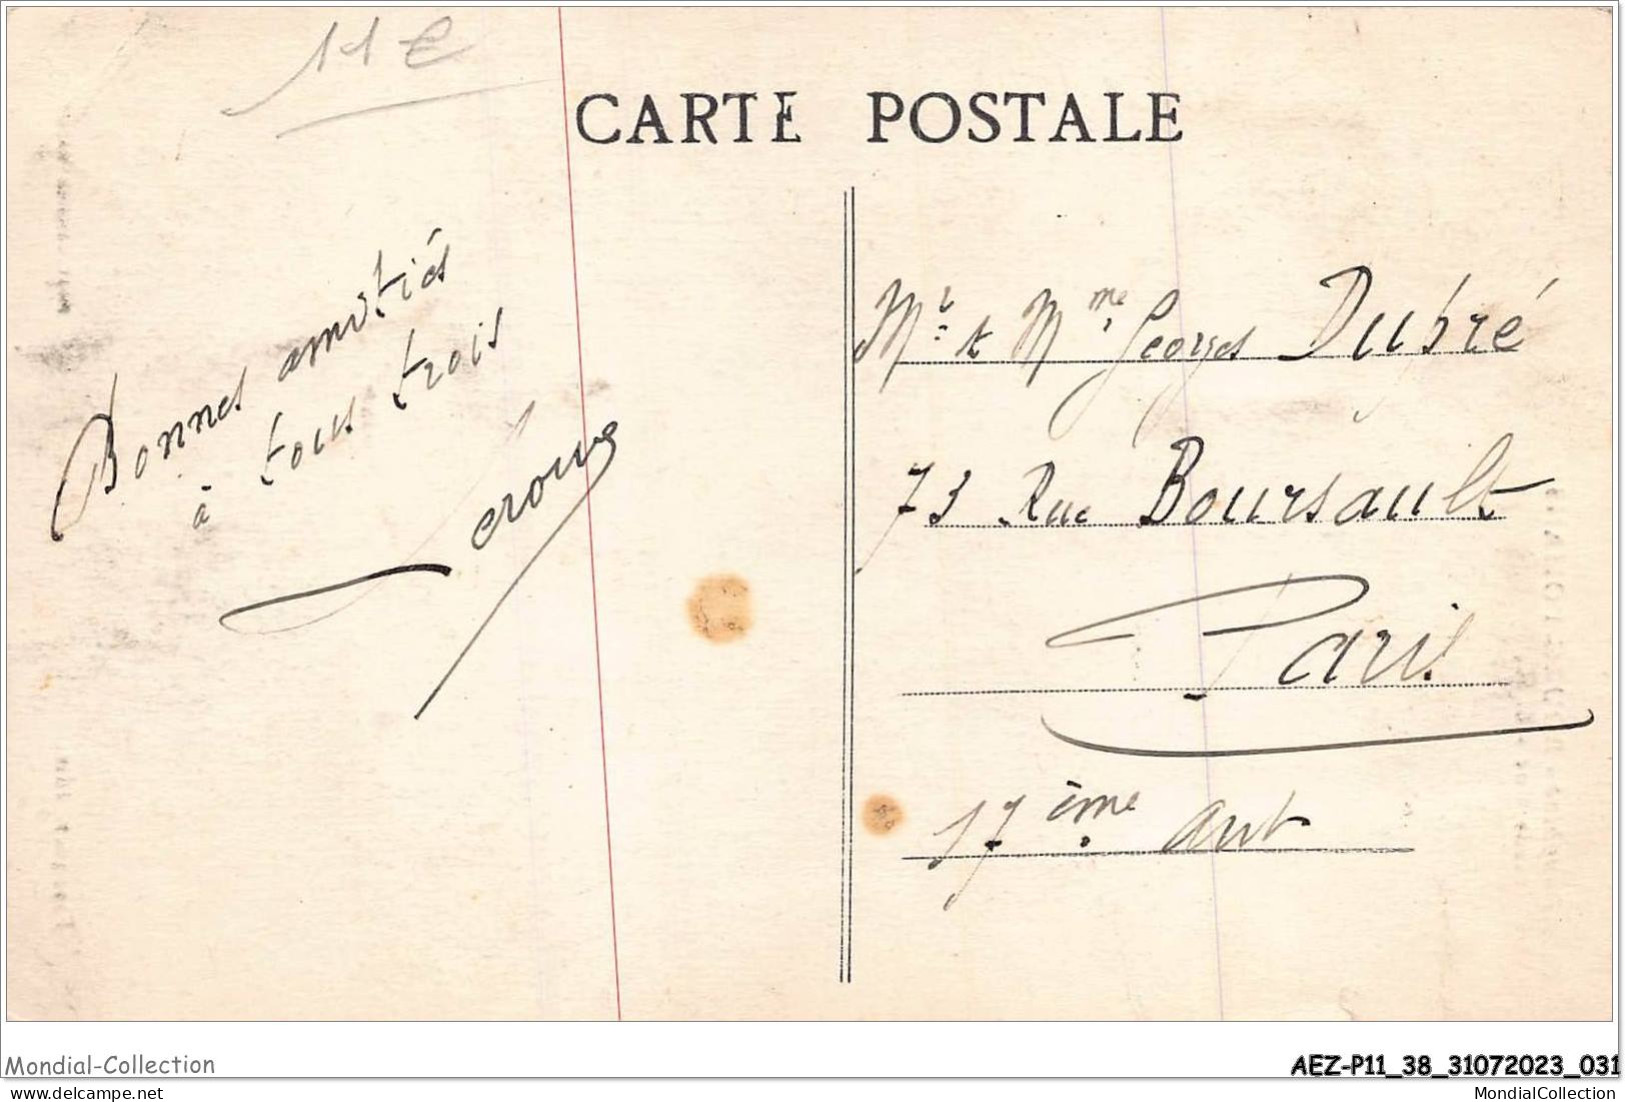 11 €
CARTE POSTALE
Bonnes amitiés
à tous trois
Mr & Mme Georges Dupré
73 Rue Boursault
Paris
17ème arrt
Mondial-Collection
AEZ-P11_38_31072023_031
www.delcampe.net
MondialCollection